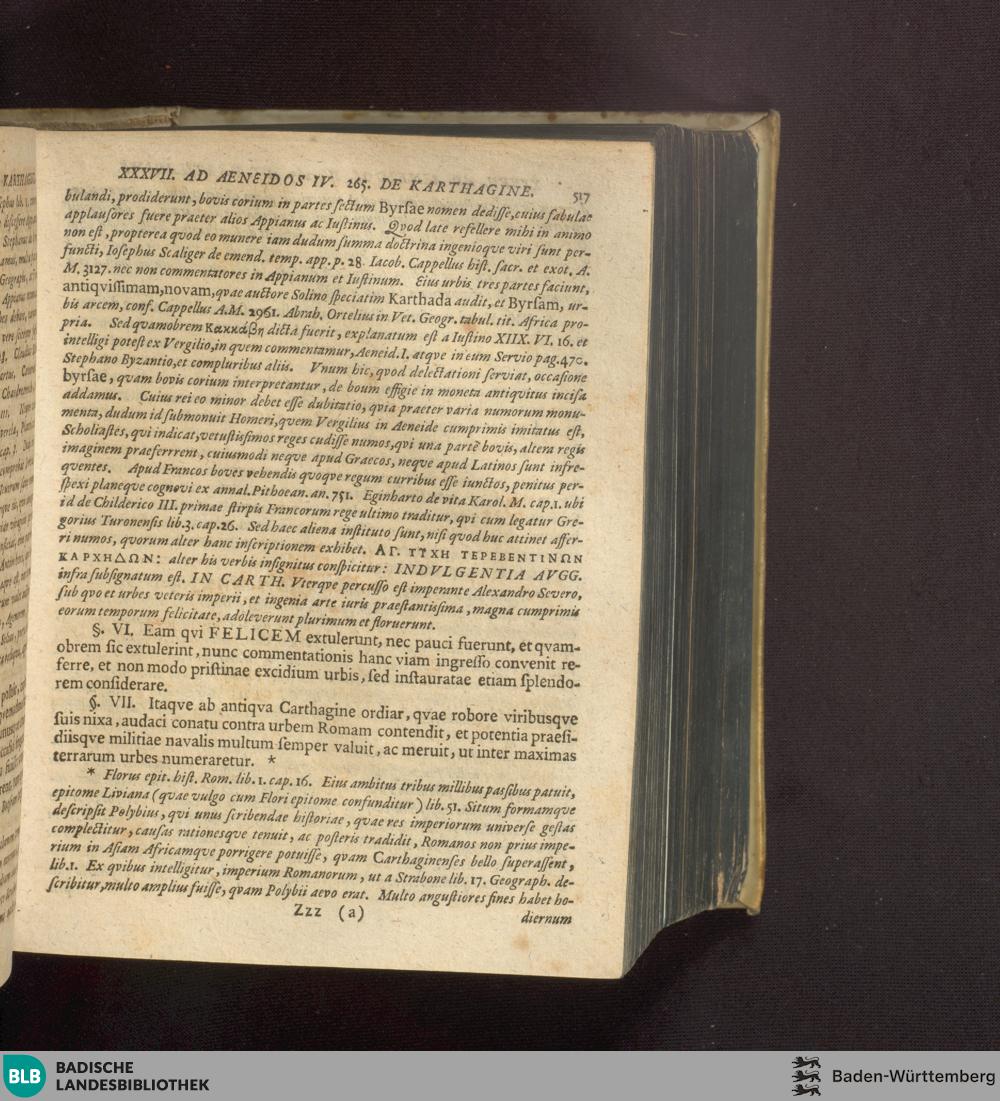 XXXVII. AD AENEIDOS IV. 265. DE KARTHAGINE. 517
bulandi, prodiderunt, bovis corium in partes sectum Byrsae nomen dedisse, cuius fabulae
applausores fuere praeter alios Appianus ac Iustinus. Qvod late refellere mihi in animo
non est, propterea qvod eo munere iam dudum summa doctrina ingenioqve viri sunt per-
functi, Iosephus Scaliger de emend. temp. app. p. 28. Iacob. Cappellus hist. sacr. et exot. A.
M. 3127. nec non commentatores in Appianum et Iustinum. Eius urbis tres partes faciunt,
antiqvissimam, novam, qvae auctore Solino speciatim Karthada audit, et Byrsam, ur-
bis arcem, conf. Cappellus A.M. 2961. Abrah. Ortelius in Vet. Geogr. tabul. tit. Africa pro-
pria. Sed qvamobrem Κακκάβη dicta fuerit, explanatum est a Iustino XIIX. VI. 16. et
intelligi potest ex Vergilio, in qvem commentamur, Aeneid. I. atqve in eum Servio pag. 470.
Stephano Byzantio, et compluribus aliis. Vnum hic, qvod delectationi serviat, occasione
byrsae, qvam bovis corium interpretantur, de boum effigie in moneta antiqvitus incisa
addamus. Cuius rei eo minor debet esse dubitatio, qvia praeter varia numorum monu-
menta, dudum id submonuit Homeri, qvem Vergilius in Aeneide cumprimis imitatus est,
Scholiastes, qvi indicat, vetustissimos reges cudisse numos, qvi una parte bovis, altera regis
imaginem praeferrrent, cuiusmodi neqve apud Graecos, neqve apud Latinos sunt infre-
qventes. Apud Francos boves vehendis qvoqve regum curribus esse iunctos, penitus per-
spexi planeqve cognovi ex annal. Pithoean. an. 751. Eginharto de vita Karol. M. cap. 1. ubi
id de Childerico III. primae stirpis Francorum rege ultimo traditur, qvi cum legatur Gre-
gorius Turonensis lib. 3. cap. 26. Sed haec aliena instituto sunt, nisi qvod huc attinet asser-
ri numos, qvorum alter hanc inscriptionem exhibet. ΑΓ. ΤΥΧΗ ΤΕΡΕΒΕΝΤΙΝΩΝ
ΚΑΡΧΗΔΩΝ: alter his verbis insignitus conspicitur: INDVLGENTIA AVGG.
infra subsignatum est. IN CARTH. Vterqve percusso est imperante Alexandro Severo,
sub qvo et urbes veteris imperii, et ingenia arte iuris praestantissima, magna cumprimis
eorum temporum felicitate, adoleverunt plurimum et floruerunt.
§. VI. Eam qvi FELICEM extulerunt, nec pauci fuerunt, et qvam-
obrem sic extulerint, nunc commentationis hanc viam ingresso convenit re-
ferre, et non modo pristinae excidium urbis, sed instauratae etiam splendo-
rem considerare.
§. VII. Itaqve ab antiqva Carthagine ordiar, qvae robore viribusqve
suis nixa, audaci conatu contra urbem Romam contendit, et potentia praesi-
diisqve militiae navalis multum semper valuit, ac meruit, ut inter maximas
terrarum urbes numeraretur. *
* Florus epit. hist. Rom. lib. 1. cap. 16. Eius ambitus tribus millibus passibus patuit,
epitome Liviana (qvae vulgo cum Flori epitome confunditur) lib. 51. Situm formamqve
descripsit Polybius, qvi unus scribendae historiae, qvae res imperiorum universe gestas
complectitur, causas rationesqve tenuit, ac posteris tradidit, Romanos non prius impe-
rium in Asiam Africamqve porrigere potuisse, qvam Carthaginenses bello superassent,
lib. 1. Ex qvibus intelligitur, imperium Romanorum, ut a Strabone lib. 17. Geograph. de-
scribitur, multo amplius fuisse, qvam Polybii aevo erat. Multo angustiores fines habet ho-
Zzz (a) diernum
BLB BADISCHE
LANDESBIBLIOTHEK
Baden-Württemberg